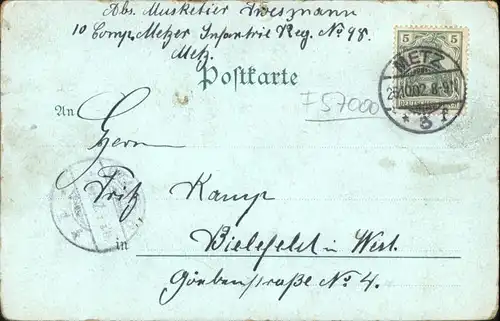 Abs. Musketier
10 Comp. Metzer Infantrie Reg. No 98.
Metz.
Postkarte
5 5
METZ
26.10.02. 8-9
* 3
F57000
An
Herrn
Fritz Kamp
in Bielefeld in West.
Goebenstraße No 4.